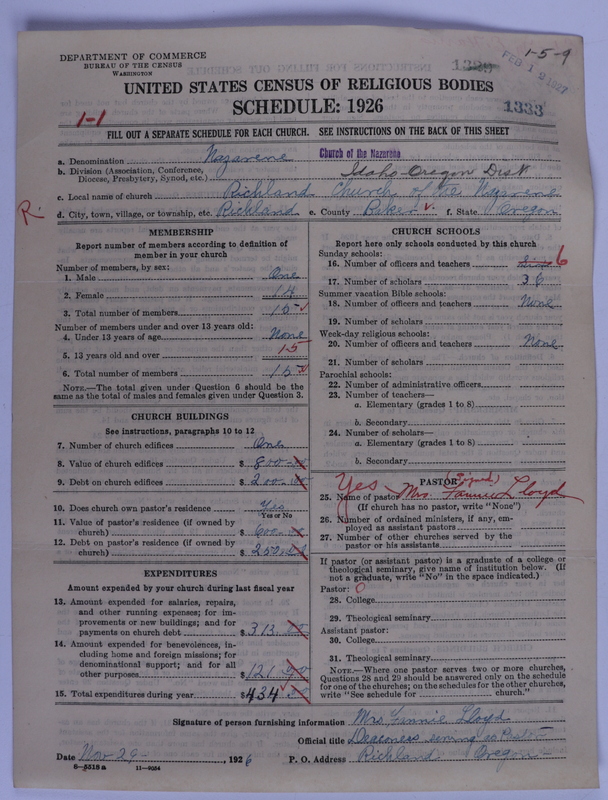 DEPARTMENT OF COMMERCE
BUREAU OF THE CENSUS
WASHINGTON
1-5-9
FEB 19 1927
UNITED STATES CENSUS OF RELIGIOUS BODIES
SCHEDULE: 1926
1333
1-1
FILL OUT A SEPARATE SCHEDULE FOR EACH CHURCH. SEE INSTRUCTIONS ON THE BACK OF THIS SHEET
a. Denomination Nazarene Church of the Nazarene
b. Division (Association, Conference, Diocese, Presbytery, Synod, etc.) Idaho-Oregon Dist
c. Local name of church Richland Church of the Nazarene
R. d. City, town, village, or township, etc. Richland e. County Baker v. f. State Oregon
MEMBERSHIP
Report number of members according to definition of
member in your church
Number of members, by sex:
1. Male One
2. Female 14
3. Total number of members 15
Number of members under and over 13 years old:
4. Under 13 years of age None
5. 13 years old and over 15
6. Total number of members 15
NOTE.—The total given under Question 6 should be
the same as the total of males and females given under Question 3.
CHURCH BUILDINGS
See instructions, paragraphs 10 to 12
7. Number of church edifices One
8. Value of church edifices $ 800.00
9. Debt on church edifices $ 200.00
10. Does church own pastor's residence? Yes
Yes or No
11. Value of pastor's residence (if owned by
church) $ 600.00
12. Debt on pastor's residence (if owned by
church) $ 250.00
EXPENDITURES
Amount expended by your church during last fiscal year
13. Amount expended for salaries, repairs,
and other running expenses; for im-
provements or new buildings; and for
payments on church debt $ 313.
14. Amount expended for benevolences, in-
cluding home and foreign missions; for
denominational support; and for all
other purposes $ 121
15. Total expenditures during year $ 434
CHURCH SCHOOLS
Report here only schools conducted by this church
Sunday schools:
16. Number of officers and teachers 6
17. Number of scholars 36
Summer vacation Bible schools:
18. Number of officers and teachers None
19. Number of scholars
Week-day religious schools:
20. Number of officers and teachers None
21. Number of scholars
Parochial schools:
22. Number of administrative officers
23. Number of teachers—
a. Elementary (grades 1 to 8)
b. Secondary
24. Number of scholars—
a. Elementary (grades 1 to 8)
b. Secondary
Yes PASTOR
25. Name of pastor Mrs. Fannie Lloyd
(If church has no pastor, write "None")
26. Number of ordained ministers, if any, em-
ployed as assistant pastors
27. Number of other churches served by the
pastor or his assistants
If pastor (or assistant pastor) is a graduate of a college or
theological seminary, give name of institution below. (If
not a graduate, write "No" in the space indicated.)
Pastor: 0
28. College
29. Theological seminary
Assistant pastor:
30. College
31. Theological seminary
NOTE.—Where one pastor serves two or more churches,
Questions 28 and 29 should be answered only on the schedule
for one of the churches; on the schedules for the other churches,
write "See schedule for church."
Signature of person furnishing information Mrs. Fannie Lloyd
Official title Deaconess serving as Pastor
Date Nov 29 , 1926 P. O. Address Richland Oregon
8—5518a 11—9054